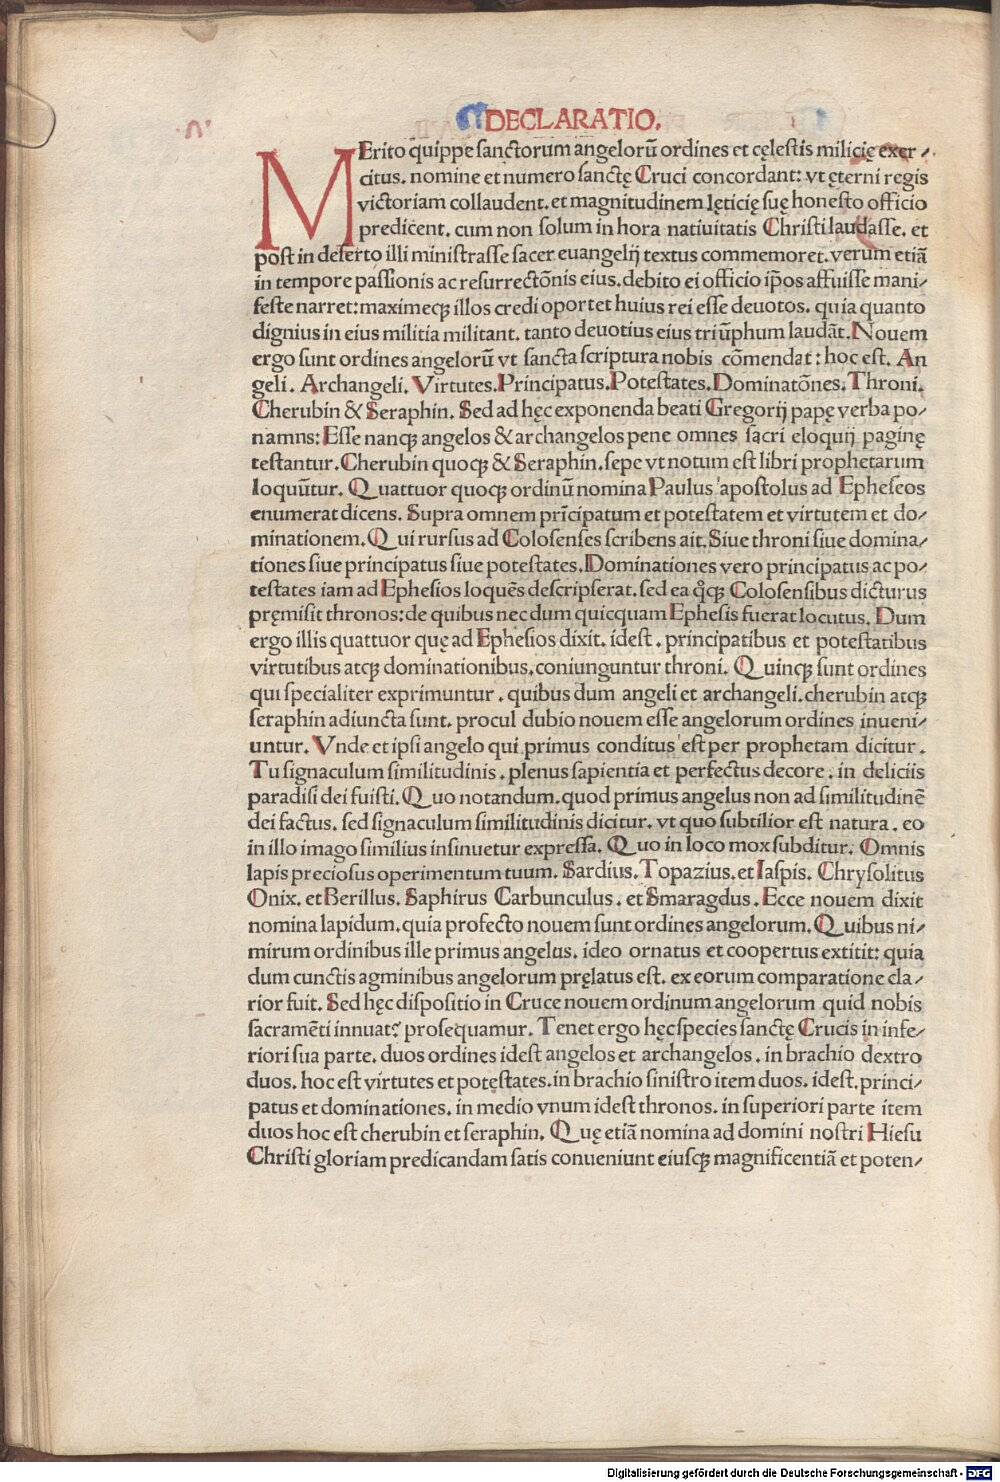 DECLARATIO.
MErito quippe sanctorum angelorũ ordines et cęlestis milicię exer⸗
citus. nomine et numero sanctę Cruci concordant: vt ęterni regis
victoriam collaudent. et magnitudinem lęticię suę honesto officio
predicent. cum non solum in hora natiuitatis Christi laudasse. et
post in deserto illi ministrasse sacer euangelij textus commemoret. verum etiã
in tempore passionis ac resurrectõnis eius. debito ei officio ip̃os affuisse mani⸗
feste narret: maximecꝫ illos credi oportet huius rei esse deuotos. quia quanto
dignius in eius militia militant. tanto deuotius eius triũphum laudãt. Nouem
ergo sunt ordines angelorũ vt sancta scriptura nobis cõmendat: hoc est. An
geli. Archangeli. Virtutes. Principatus. Potestates. Dominatõnes. Throni.
Cherubin & Seraphin. Sed ad hęc exponenda beati Gregorij papę verba po⸗
namns: Esse nanqꝫ angelos & archangelos pene omnes sacri eloquij paginę
testantur. Cherubin quoqꝫ & Seraphin. sepe vt notum est libri prophetarum
loquũtur. Quattuor quoqꝫ ordinũ nomina Paulus apostolus ad Epheseos
enumerat dicens. Supra omnem prĩcipatum et potestatem et virtutem et do⸗
minationem. Qui rursus ad Colosenses scribens ait. Siue throni siue domina⸗
tiones siue principatus siue potestates. Dominationes vero principatus ac po⸗
testates iam ad Ephesios loquẽs descripserat. sed ea q̊qꝫ Colosensibus dicturus
pręmisit thronos: de quibus nec dum quicquam Ephesis fuerat locutus. Dum
ergo illis quattuor quę ad Ephesios dixit. idest. principatibus et potestatibus
virtutibus atqꝫ dominationibus. coniunguntur throni. Quinqꝫ sunt ordines
qui specialiter exprimuntur. quibus dum angeli et archangeli. cherubin atqꝫ
seraphin adiuncta sunt. procul dubio nouem esse angelorum ordines inueni⸗
untur. Vnde et ipsi angelo qui primus conditus est per prophetam dicitur.
Tu signaculum similitudinis. plenus sapientia et perfectus decore. in deliciis
paradisi dei fuisti. Quo notandum. quod primus angelus non ad similitudinẽ
dei factus. sed signaculum similitudinis dicitur. vt quo subtilior est natura. eo
in illo imago similius insinuetur expressa. Quo in loco mox subditur. Omnis
lapis preciosus operimentum tuum. Sardius. Topazius. et Iaspis. Chrysolitus
Onix. et Berillus. Saphirus Carbunculus. et Smaragdus. Ecce nouem dixit
nomina lapidum. quia profecto nouem sunt ordines angelorum. Quibus ni⸗
mirum ordinibus ille primus angelus. ideo ornatus et coopertus extitit: quia
dum cunctis agminibus angelorum pręlatus est. ex eorum comparatione cla⸗
rior fuit. Sed hęc dispositio in Cruce nouem ordinum angelorum quid nobis
sacramẽti innuat? prosequamur. Tenet ergo hęc species sanctę Crucis in infe⸗
riori sua parte. duos ordines idest angelos et archangelos. in brachio dextro
duos. hoc est virtutes et potestates. in brachio sinistro item duos. idest. princi⸗
patus et dominationes. in medio vnum idest thronos. in superiori parte item
duos hoc est cherubin et seraphin. Quę etiã nomina ad domini nostri Hiesu
Christi gloriam predicandam satis conueniunt eiusqꝫ magnificentiã et poten⸗
Digitalisierung gefördert durch die Deutsche Forschungsgemeinschaft - DFG